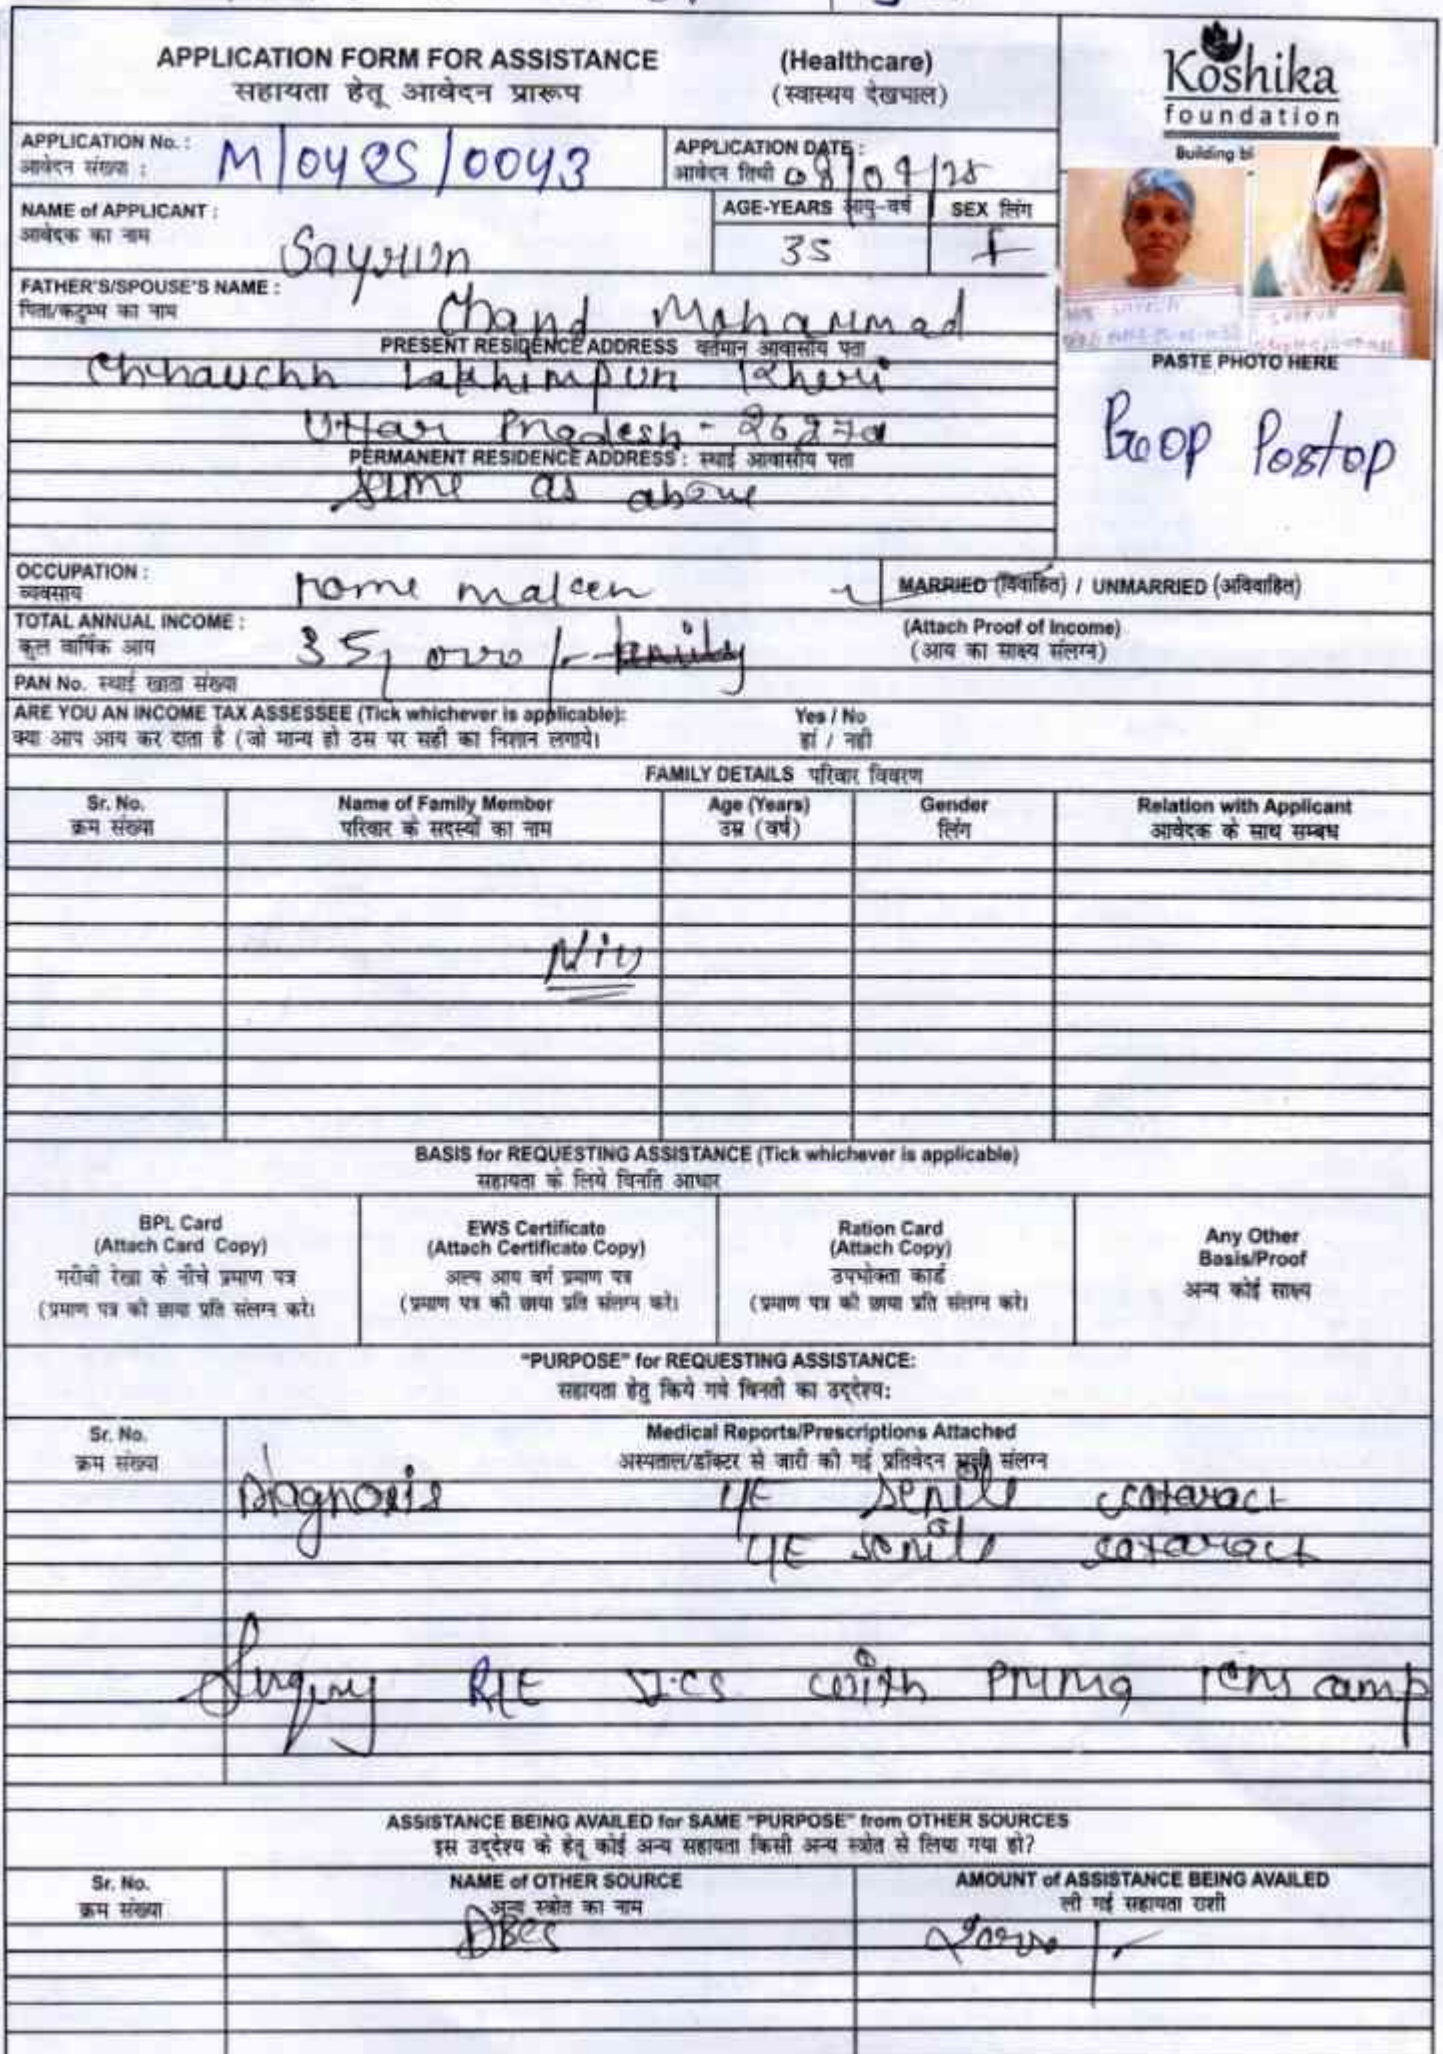 APPLICATION FORM FOR ASSISTANCE (Healthcare)
सहायता हेतू आवेदन प्रारूप (स्वास्थय देखभाल)
Koshika
foundation
Building bl
APPLICATION No. : M/0425/0043
आवेदन संख्या :
APPLICATION DATE :
आवेदन तिथी
NAME of APPLICANT :
आवेदक का नाम
AGE-YEARS आयु-वर्ष SEX लिंग
35 F
FATHER'S/SPOUSE'S NAME :
पिता/कटुम्भ का नाम
Chand Mohammad
PRESENT RESIDENCE ADDRESS वर्तमान आवासीय पता
Chhauchh Lakhimpur Kheri
Uttar Pradesh -
PERMANENT RESIDENCE ADDRESS : स्थाई आवासीय पता
same as above
PASTE PHOTO HERE
Preop Postop
OCCUPATION :
व्यवसाय
home maker
MARRIED (विवाहित) / UNMARRIED (अविवाहित)
TOTAL ANNUAL INCOME :
कुल वार्षिक आय
35,000/-
(Attach Proof of Income)
(आय का साक्ष्य संलग्न)
PAN No. स्थाई खाता संख्या
ARE YOU AN INCOME TAX ASSESSEE (Tick whichever is applicable): Yes / No
क्या आप आय कर दाता है (जो मान्य हो उस पर सही का निशान लगाये। हां / नही
FAMILY DETAILS परिवार विवरण
Sr. No. Name of Family Member Age (Years) Gender Relation with Applicant
क्रम संख्या परिवार के सदस्यों का नाम उम्र (वर्ष) लिंग आवेदक के साथ सम्बध
BASIS for REQUESTING ASSISTANCE (Tick whichever is applicable)
सहायता के लिये विनति आधार
BPL Card
(Attach Card Copy)
गरीबी रेखा के नीचे प्रमाण पत्र
(प्रमाण पत्र की छाया प्रति संलग्न करे।
EWS Certificate
(Attach Certificate Copy)
अल्प आय वर्ग प्रमाण पत्र
(प्रमाण पत्र की छाया प्रति संलग्न करे।
Ration Card
(Attach Copy)
उपभोक्ता कार्ड
(प्रमाण पत्र की छाया प्रति संलग्न करे।
Any Other
Basis/Proof
अन्य कोई साक्ष्य
"PURPOSE" for REQUESTING ASSISTANCE:
सहायता हेतु किये गये विनती का उद्देश्य:
Sr. No. Medical Reports/Prescriptions Attached
क्रम संख्या अस्पताल/डॉक्टर से जारी की गई प्रतिवेदन सूची संलग्न
Diagnosis senile cataract
senile cataract
Surgery R/E SICS with camp
ASSISTANCE BEING AVAILED for SAME "PURPOSE" from OTHER SOURCES
इस उद्देश्य के हेतू कोई अन्य सहायता किसी अन्य स्त्रोत से लिया गया हो?
Sr. No. NAME of OTHER SOURCE AMOUNT of ASSISTANCE BEING AVAILED
क्रम संख्या अन्य स्त्रोत का नाम ली गई सहायता राशी
DBCS